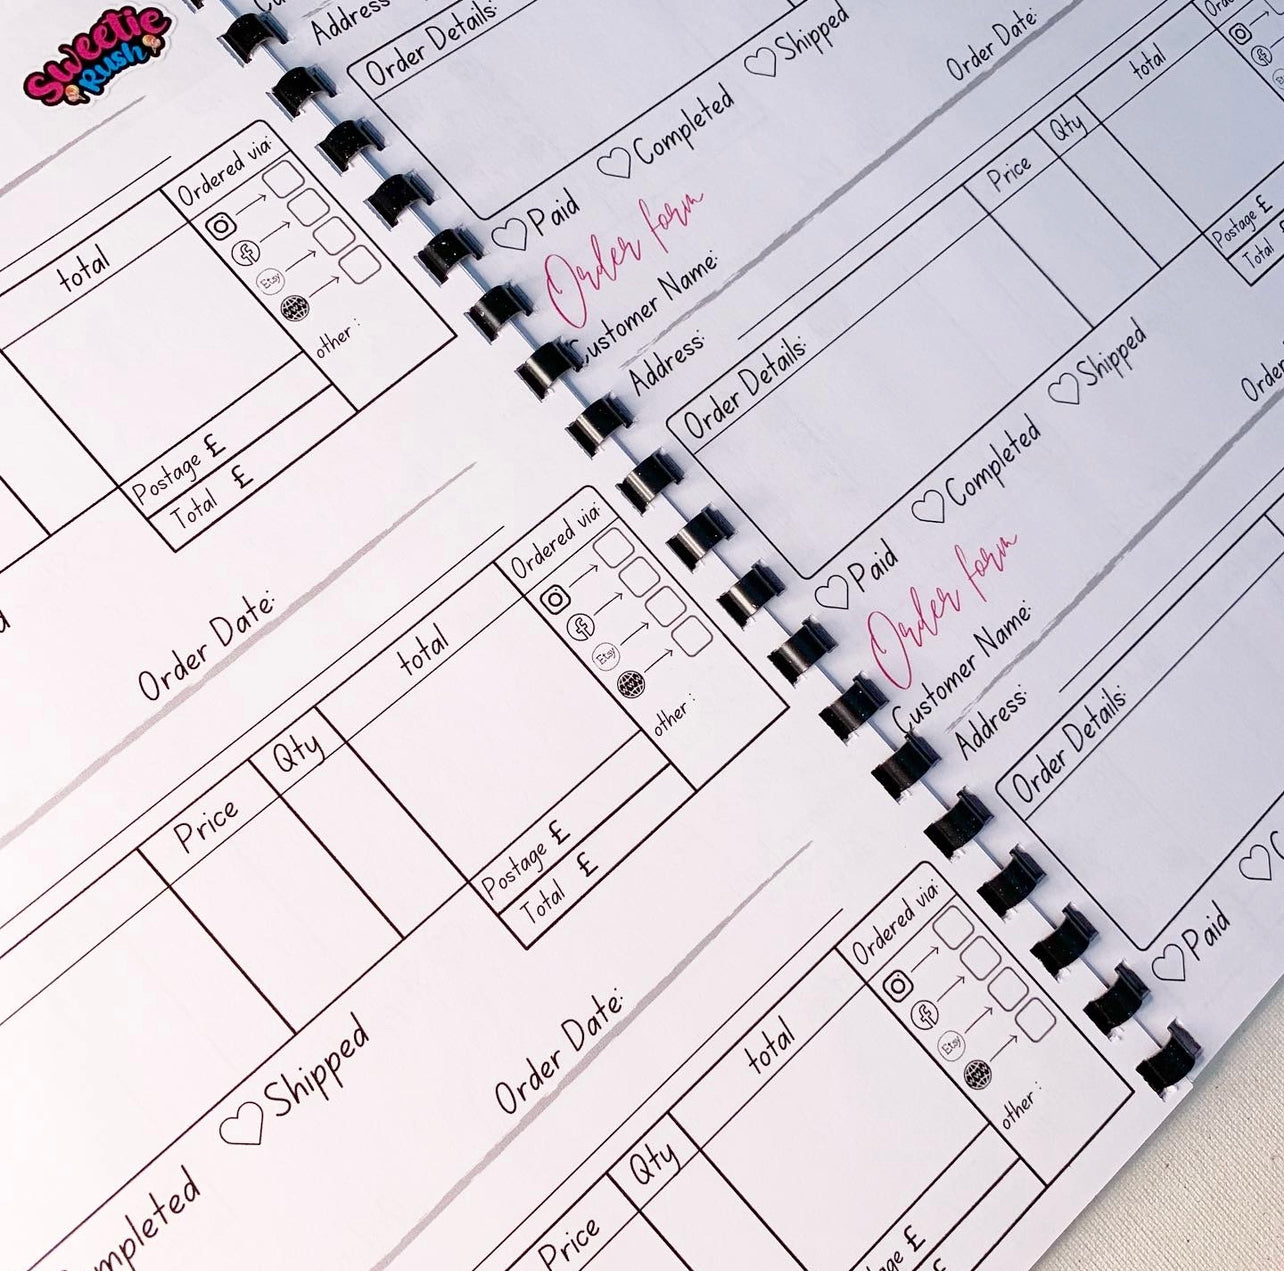 Sweetie
Rush
Ordered via:
total
Etsy
other :
Postage £
Total £
Order Date:
Ordered via:
total
Qty
Price
Etsy
other :
Postage £
Total £
Shipped
Order Date:
Ordered via:
total
Qty
Price
Etsy
other :
£
Address:
Order Details:
Paid
Completed
Shipped
Order form
Order Date:
Customer Name:
Address:
Order Details:
Price
Qty
total
Postage £
Total
Paid
Completed
Shipped
Order form
Customer Name:
Address:
Order Details:
Paid